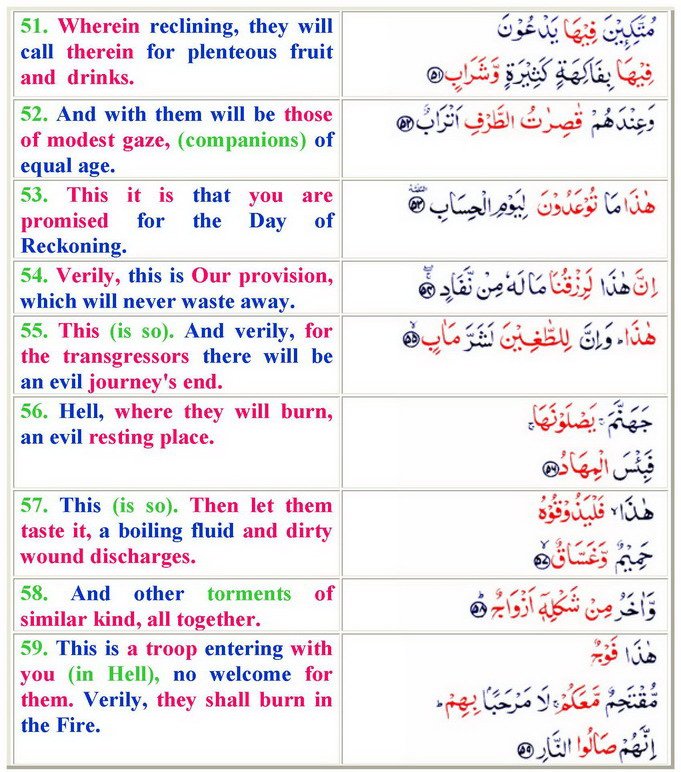 51. Wherein reclining, they will
call therein for plenteous fruit
and drinks.
مُتَّكِـِٕيْنَ فِيْهَا يَدْعُوْنَ
فِيْهَا بِفَاكِهَةٍ كَثِيْرَةٍ وَّشَرَابٍ ﴿۵۱﴾
52. And with them will be those
of modest gaze, (companions) of
equal age.
وَعِنْدَهُمْ قٰصِرٰتُ الطَّرْفِ اَتْرَابٌ ﴿۵۲﴾
53. This it is that you are
promised for the Day of
Reckoning.
هٰذَا مَا تُوْعَدُوْنَ لِيَوْمِ الْحِسَابِ ﴿۵۳﴾
54. Verily, this is Our provision,
which will never waste away.
اِنَّ هٰذَا لَرِزْقُنَا مَا لَهٗ مِنْ نَّفَادٍ ﴿۵۴﴾
55. This (is so). And verily, for
the transgressors there will be
an evil journey's end.
هٰذَا ؕ وَاِنَّ لِلطّٰغِيْنَ لَشَرَّ مَاٰبٍ ﴿۵۵﴾
56. Hell, where they will burn,
an evil resting place.
جَهَنَّمَ ۚ يَصْلَوْنَهَا ۚ
فَبِئْسَ الْمِهَادُ ﴿۵۶﴾
57. This (is so). Then let them
taste it, a boiling fluid and dirty
wound discharges.
هٰذَا ۙ فَلْيَذُوْقُوْهُ
حَمِيْمٌ وَّغَسَّاقٌ ﴿۵۷﴾
58. And other torments of
similar kind, all together.
وَّاٰخَرُ مِنْ شَكْلِهٖۤ اَزْوَاجٌ ﴿۵۸﴾
59. This is a troop entering with
you (in Hell), no welcome for
them. Verily, they shall burn in
the Fire.
هٰذَا فَوْجٌ
مُّقْتَحِمٌ مَّعَكُمْ ۚ لَا مَرْحَبًۢا بِهِمْ ؕ
اِنَّهُمْ صَالُوا النَّارِ ﴿۵۹﴾